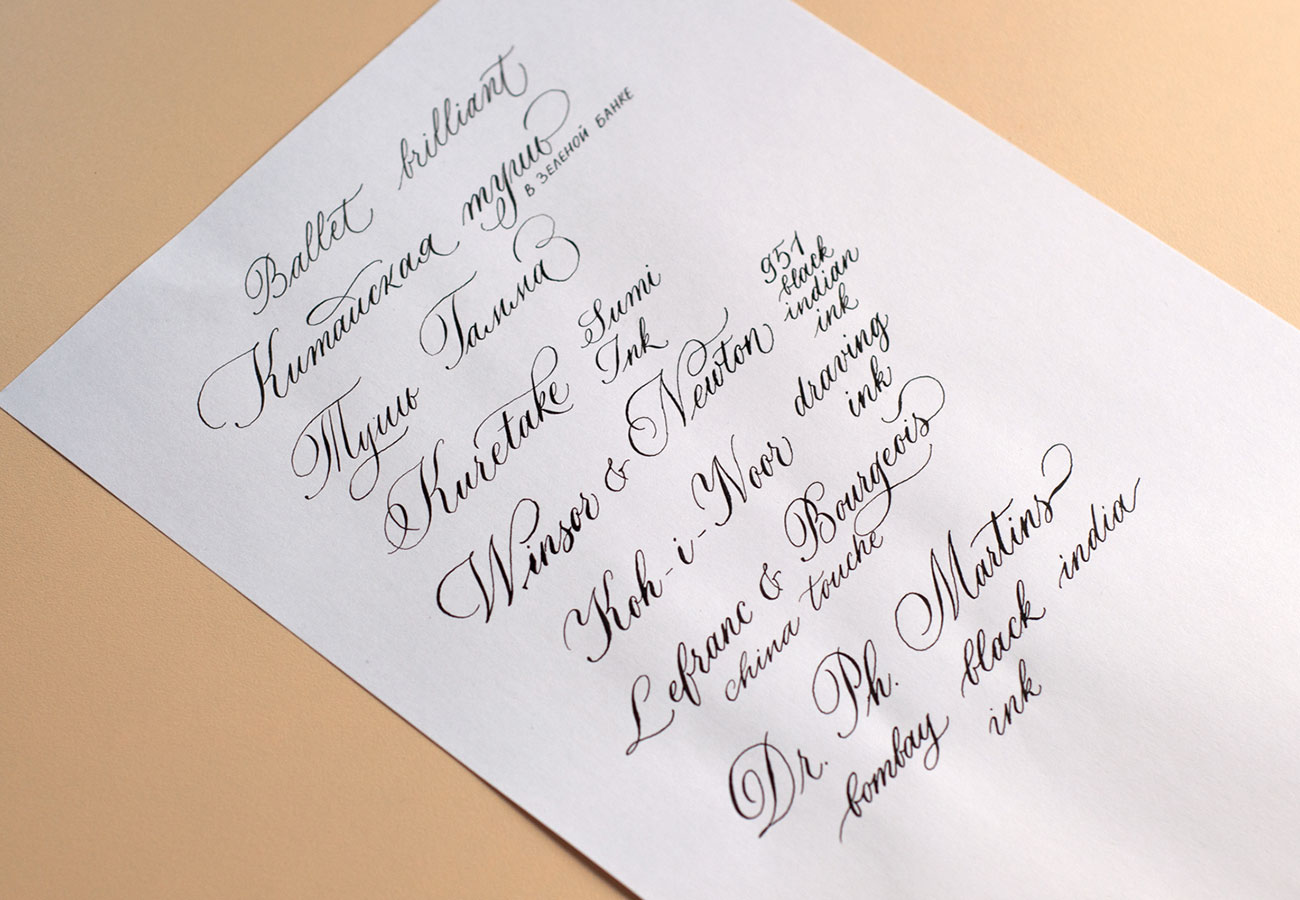 Ballet brilliant
Китайская тушь
В ЗЕЛЕНОЙ БАНКЕ
Тушь Гамма
Kuretake Sumi
Ink
Winsor & Newton 951
black
indian
ink
Koh-i-Noor draving
ink
Lefranc & Bourgeois
china touche
Dr. Ph. Martins
bombay black india
ink